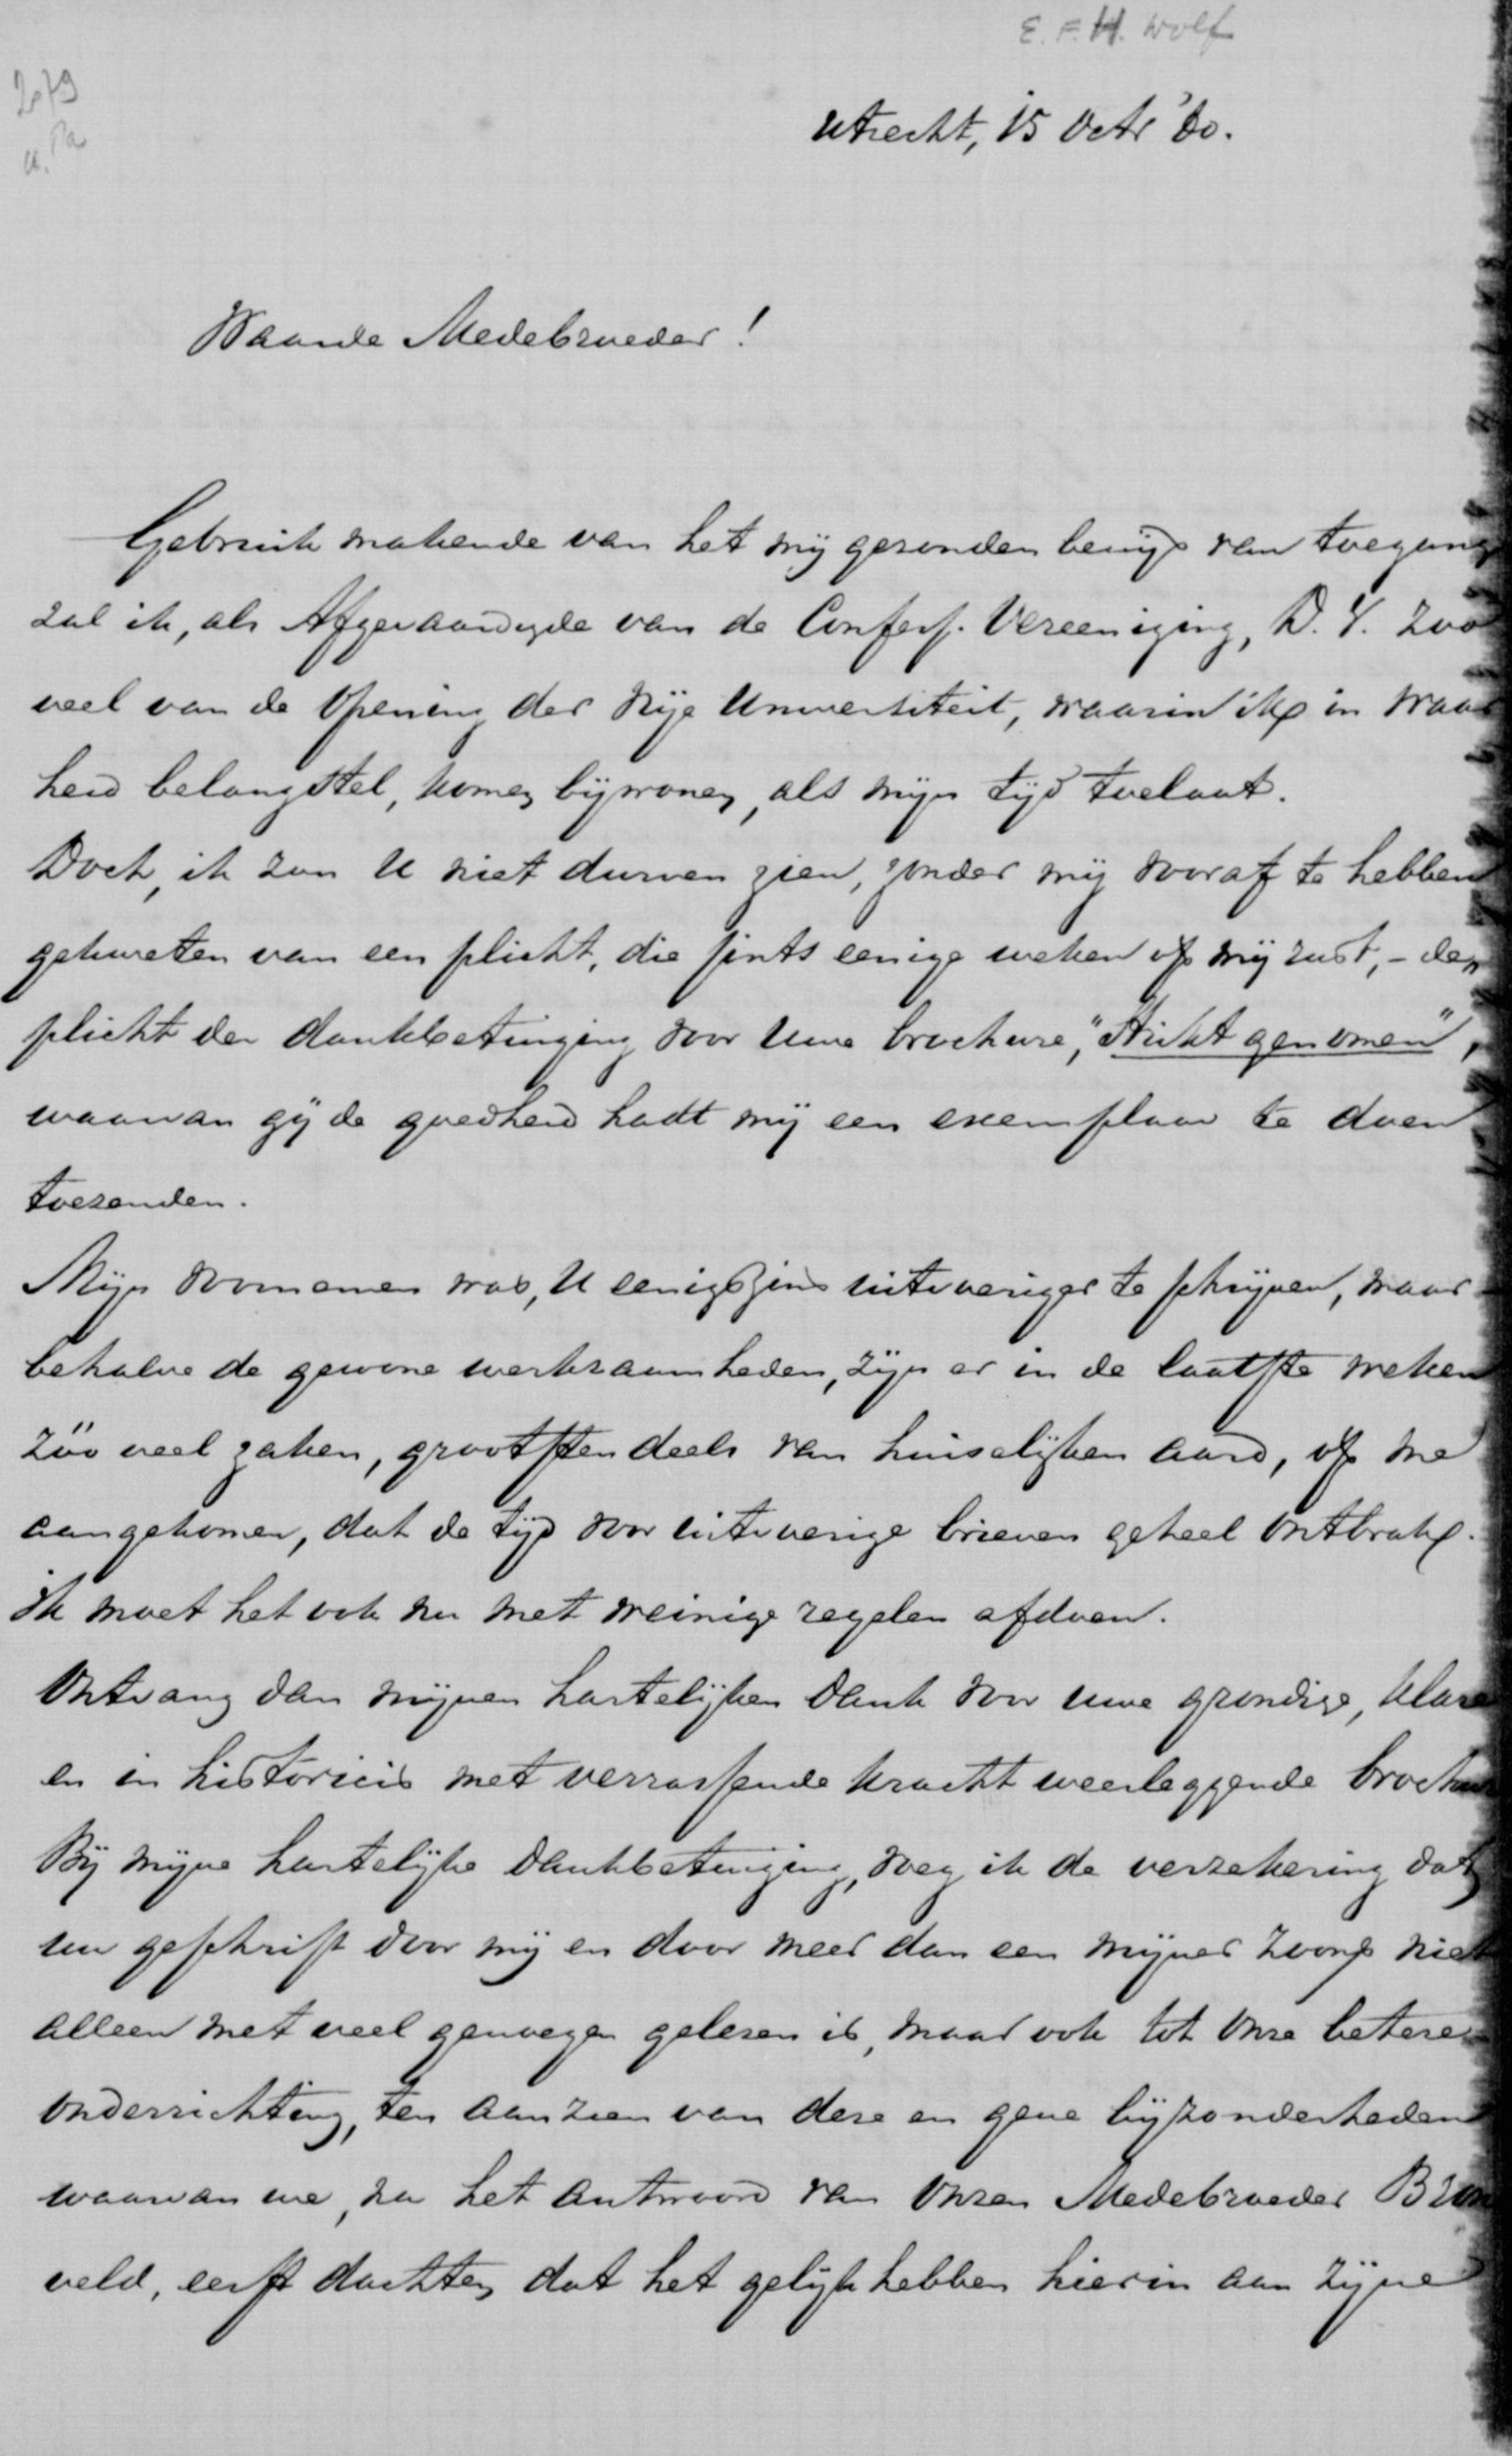 E. F. H. Wolf
2079
Utrecht, 15 Octr '80.
Waarde Medebroeder!
Gebruik makende van het mij gezonden bewijs van toegang
zal ik, als Afgevaardigde van de Confess. Vereeniging, D. V. zoo
veel van de opening der Vrije Universiteit, waarin ik in waar
heid belangstel, komen bijwonen, als mijn tijd toelaat.
Doch, ik zou U niet durven zien, zonder mij vooraf te hebben
gekweten van een plicht, die sints eenige weken op mij rust, - den
plicht der dankbetuiging voor Uwe brochure, "Strikt genomen",
waarvan gij de goedheid hadt mij een exemplaar te doen
toezenden.
Mijn voornemen was, U eenigszins uitvoeriger te schrijven, maar
behalve de gewone werkzaamheden, zijn er in de laatste weken
zóó veel zaken, grootstendeels van huiselijken aard, op me
aangekomen, dat de tijd voor uitvoerige brieven geheel ontbrak.
Ik moet het ook nu met weinige regelen afdoen.
Ontvang dan mijnen hartelijken dank voor uwe grondige, klare
en in historicis met verrassende kracht weerleggende brochure
Bij mijne hartelijke dankbetuiging, voeg ik de verzekering dat
uw geschrift door mij en door meer dan een mijner zoons niet
alleen met veel genoegen gelezen is, maar ook tot onze betere
onderrichting, ten aanzien van deze en gene bijzonderheden
waarvan we, na het antwoord van onzen Medebroeder Bron
veld, eerst dachten dat het gelijk hebben hierin aan zijne